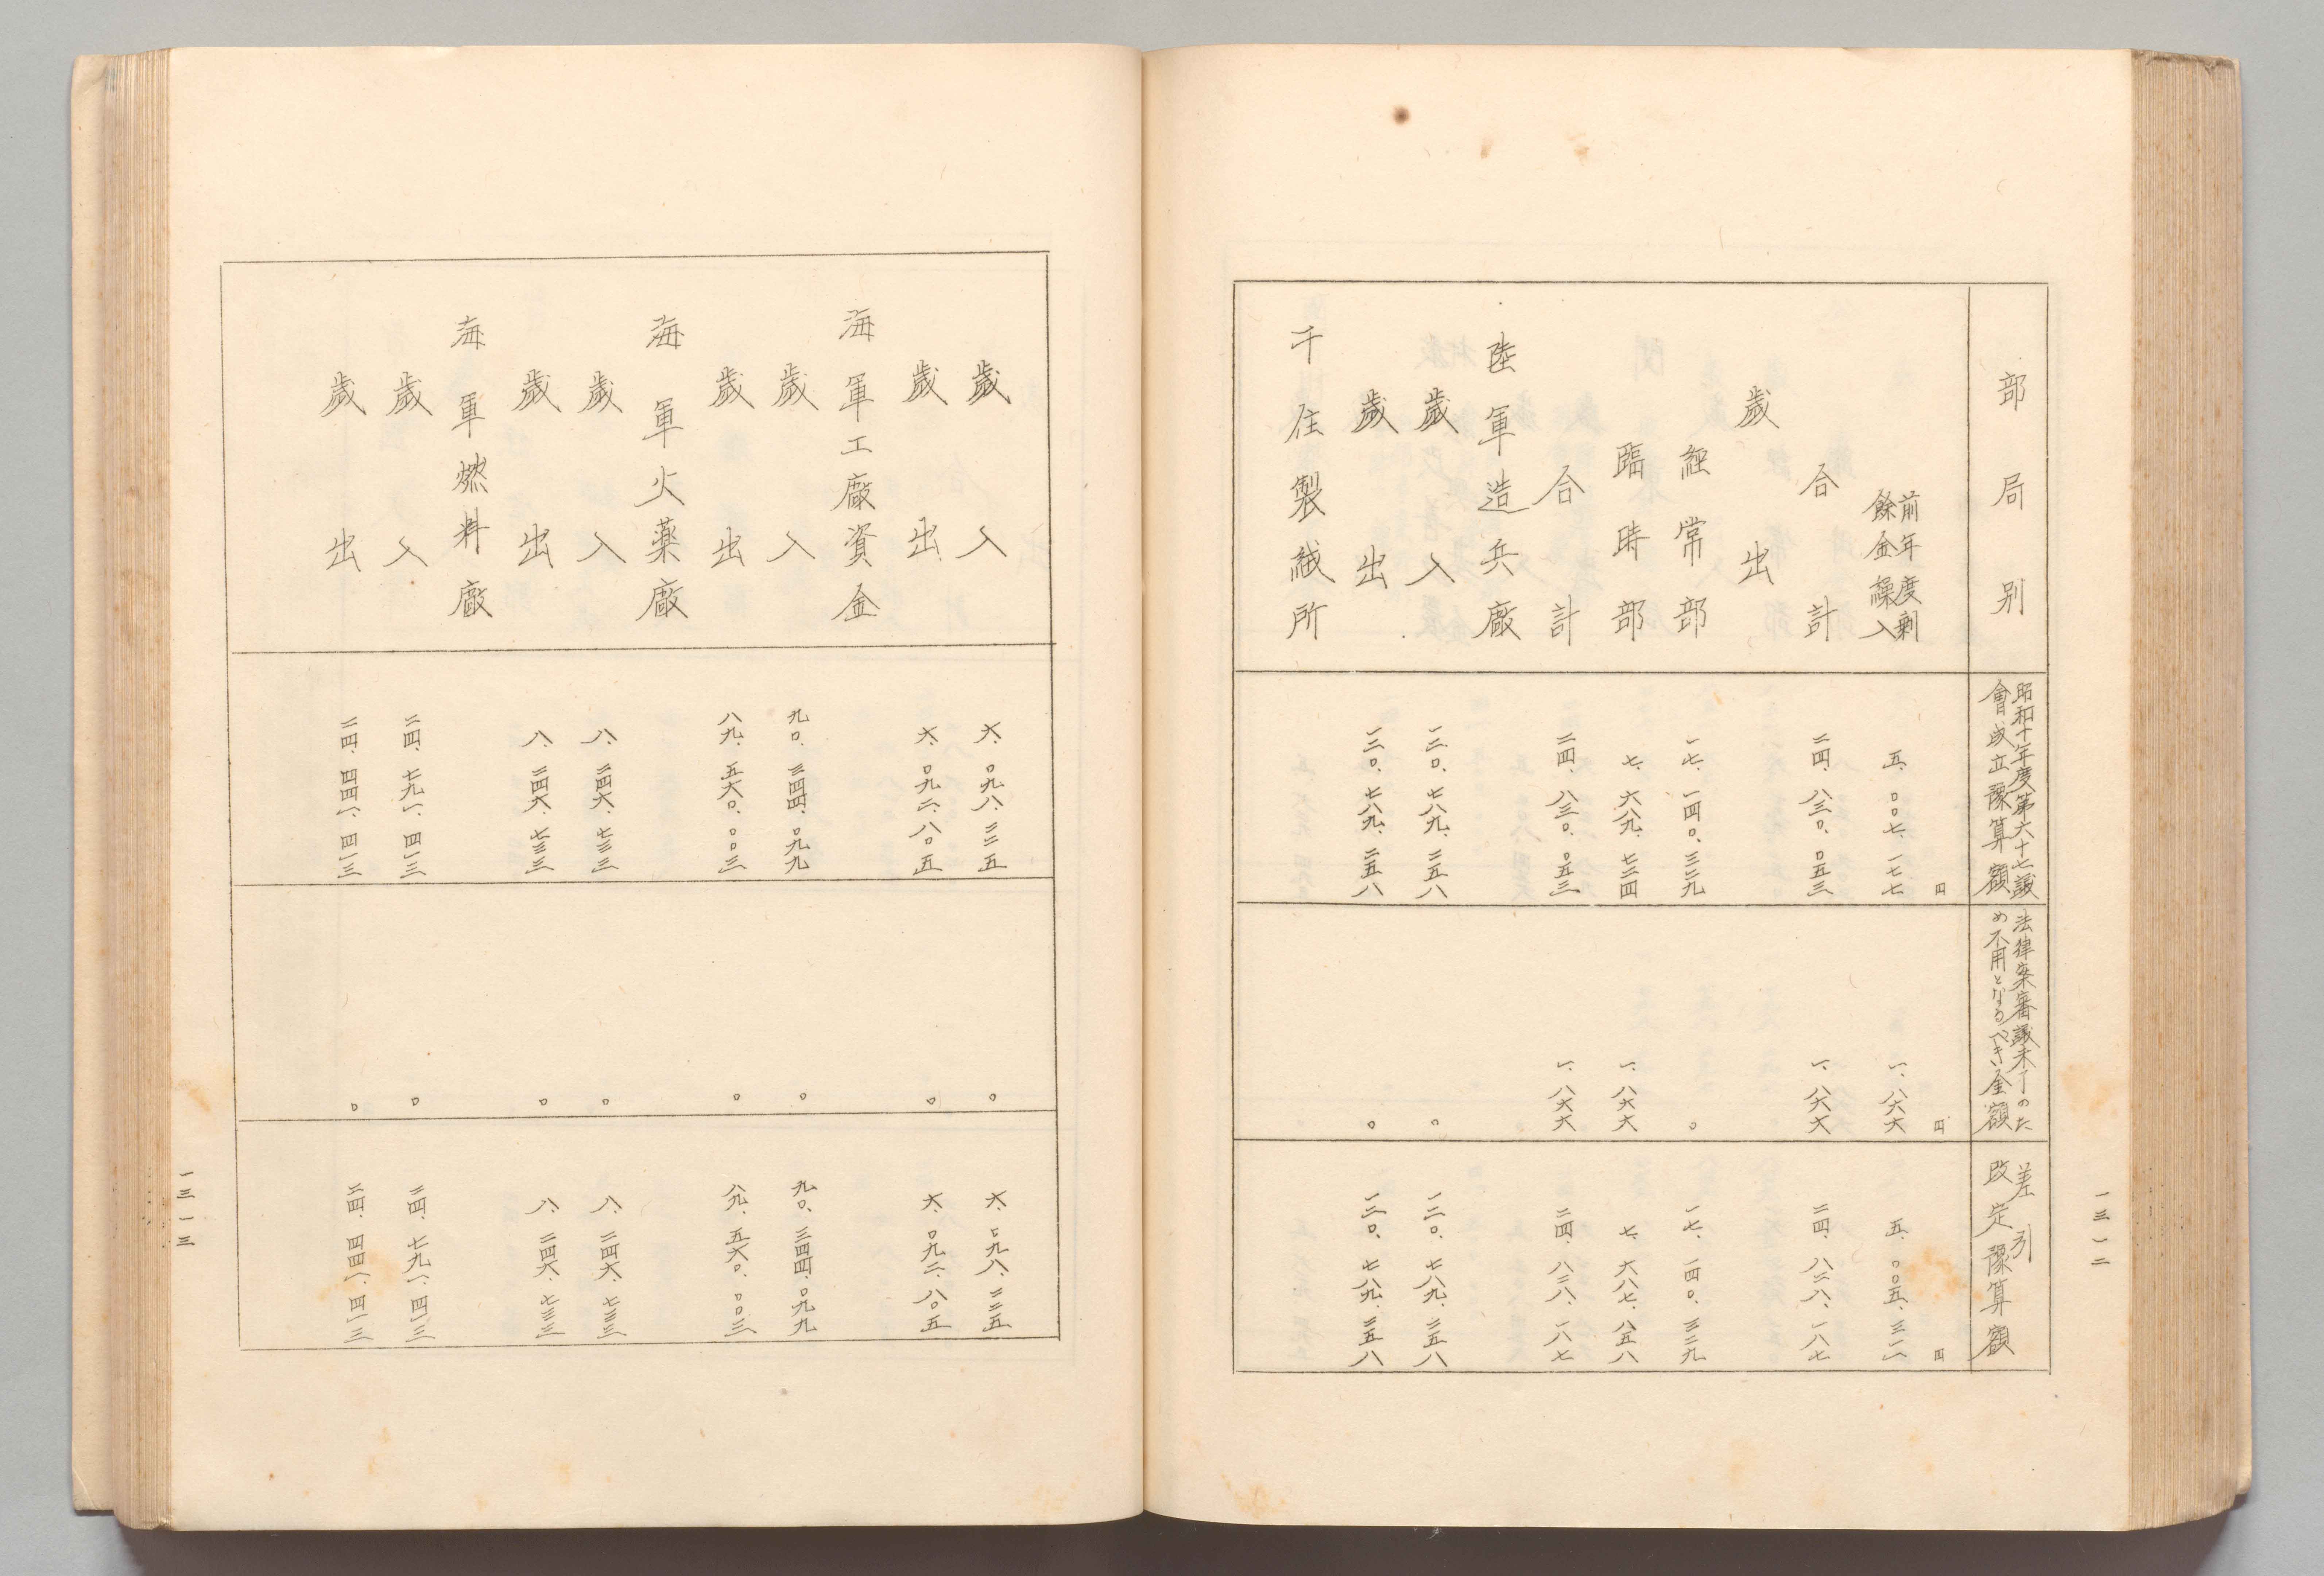 一三一二
部局別
昭和十年度第六十七議
會成立豫算額
法律案審議未了のた
め不用となるべき金額
差引
改定豫算額
円
円
円
前年度剰
餘金繰入
五、〇〇七、一七七
一、八六六
五、〇〇五、三一一
合計
二四、八三〇、〇五三
一、八六六
二四、八二八、一八七
歳出
経常部
一七、一四〇、三二九
〇
一七、一四〇、三二九
臨時部
七、六八九、七二四
一、八六六
七、六八七、八五八
合計
二四、八三〇、〇五三
一、八六六
二四、八二八、一八七
陸軍造兵廠
歳入
一二〇、七八九、二五八
〇
一二〇、七八九、二五八
歳出
一二〇、七八九、二五八
〇
一二〇、七八九、二五八
千住製絨所
歳入
六、〇九八、二二五
〇
六、〇九八、二二五
歳出
六、〇九二、八〇五
〇
六、〇九二、八〇五
海軍工廠資金
歳入
九〇、三四四、〇九九
〇
九〇、三四四、〇九九
歳出
八九、五六〇、〇〇三
〇
八九、五六〇、〇〇三
海軍火薬廠
歳入
八、二四六、七三三
〇
八、二四六、七三三
歳出
八、二四六、七三三
〇
八、二四六、七三三
海軍燃料廠
歳入
二四、七九一、四一三
〇
二四、七九一、四一三
歳出
二四、四四一、四一三
〇
二四、四四一、四一三
一三一三